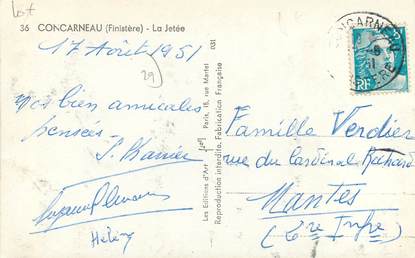 Lot
36 CONCARNEAU (Finistère) - La Jetée
17 Août 1951
29
Nos bien amicales
pensées
Hélène
Les Editions d'Art
Paris, 18, rue Martel 031
Reproduction interdite. Fabrication Française
CONCARNEAU
RF
Famille Verdier
rue du Cardinal Richard
Nantes
(Lre Infre)